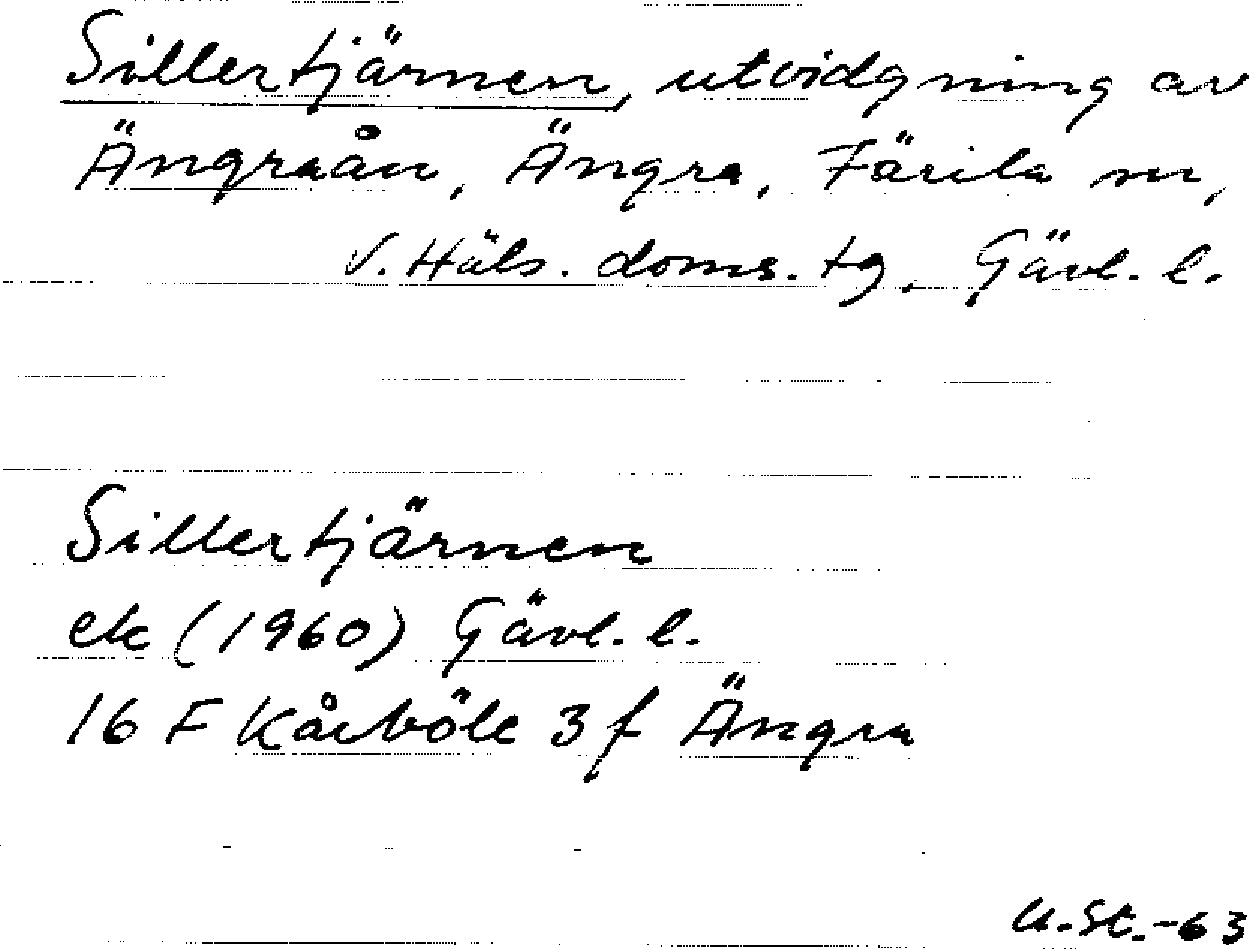 Sillertjärnen, utvidgning av
Ängraån, Ängra, Färila sn,
V. Häls. doms. tg, Gävl. l.
Sillertjärnen
ek (1960) Gävl. l.
16 F Kårböle 3 f Ängra
U.St.-63